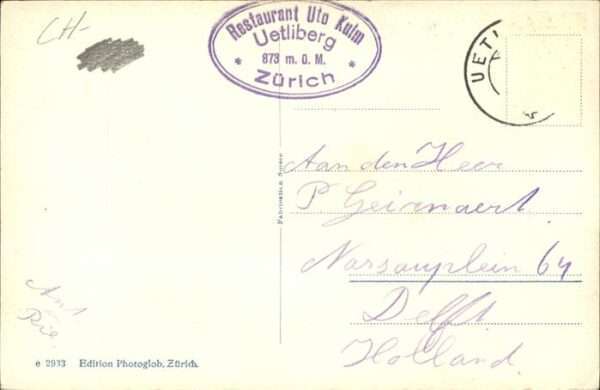 CH-
Restaurant Uto Kulm
Uetliberg
* 873 m. ü. M. *
Zürich
UETL
Aan den Heer
P Geirnaert
Nassauplein 64
Delft
Holland
Fabrication Suisse
Ant
Rie
e 2933 Edition Photoglob, Zürich.